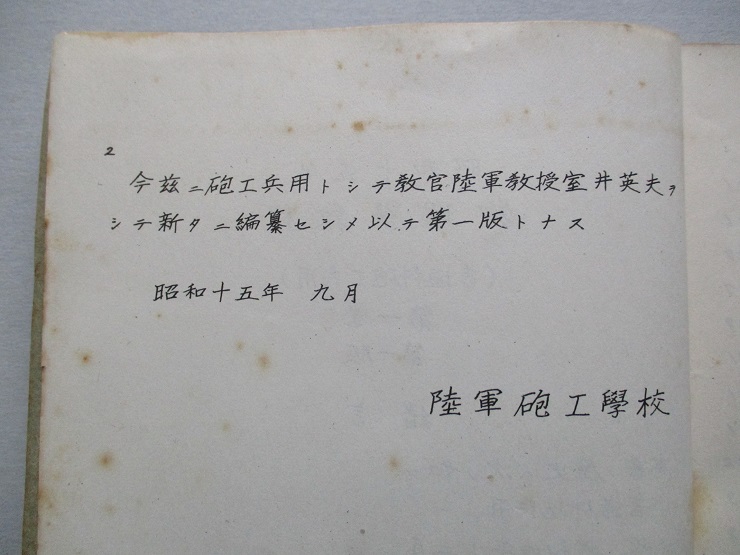 2
今茲ニ砲工兵用トシテ教官陸軍教授室井英夫ヲ
シテ新タニ編纂セシメ以テ第一版トナス
昭和十五年 九月
陸軍砲工學校